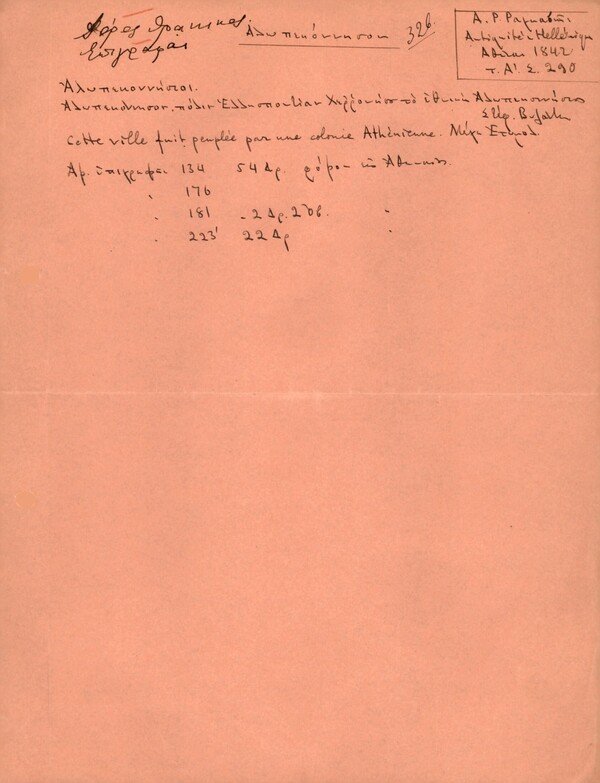 Φόρος Θρακικος
Επίγραφαι
Αλωπεκόννησοι
326
Α. Ρ. Ραγκαβῆς
Antiquités Helléniques
Αθῆναι 1842
τ. Α'. Σ. 290
Αλωπεκοννήσιοι.
Αλωπεκόννησος, πόλις Ἑλλησποντίαν Χερρονήσ τὸ ἐθνικὸν Αλωπεκοννήσιος
Στεφ. Βυζάντ.
Cette ville fuit peuplée par une colonie Athénienne. Μέγα Ετυμολ.
Αρ. ἐπιγραφαι 134 54 Δρ. φόρο
" 176
" 181 - 2 Δρ. 2 Ὀβ. "
" 223' 22 Δρ "